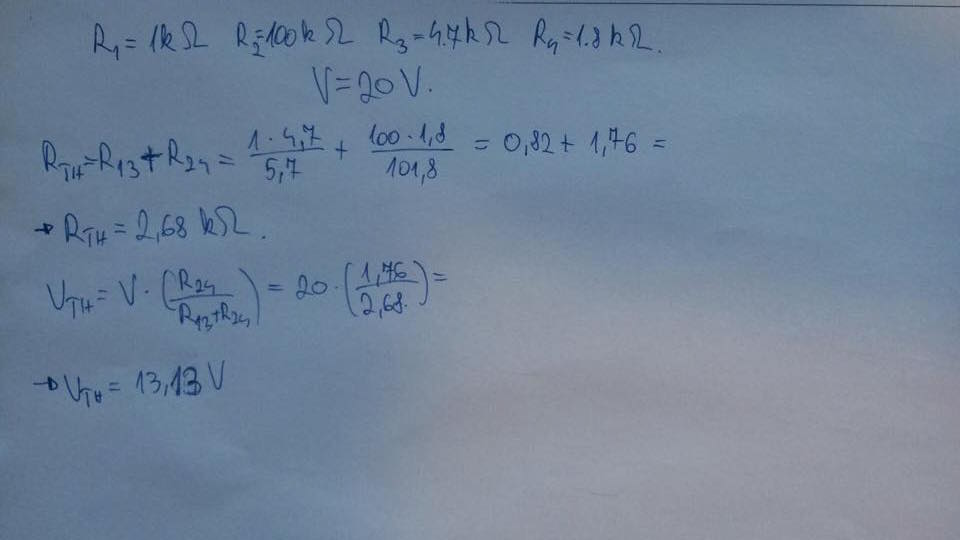 R1 = 1kΩ R2=100kΩ R3=4.7kΩ R4=1.8kΩ.
V=20V.
RTH=R13+R24 = 1·4,7/5,7 + 100·1,8/101,8 = 0,82+ 1,76 =
→ RTH = 2,68 kΩ.
VTH= V · (R24/R13+R24) = 20·(1,76/2,68.)=
→ VTH = 13,13V